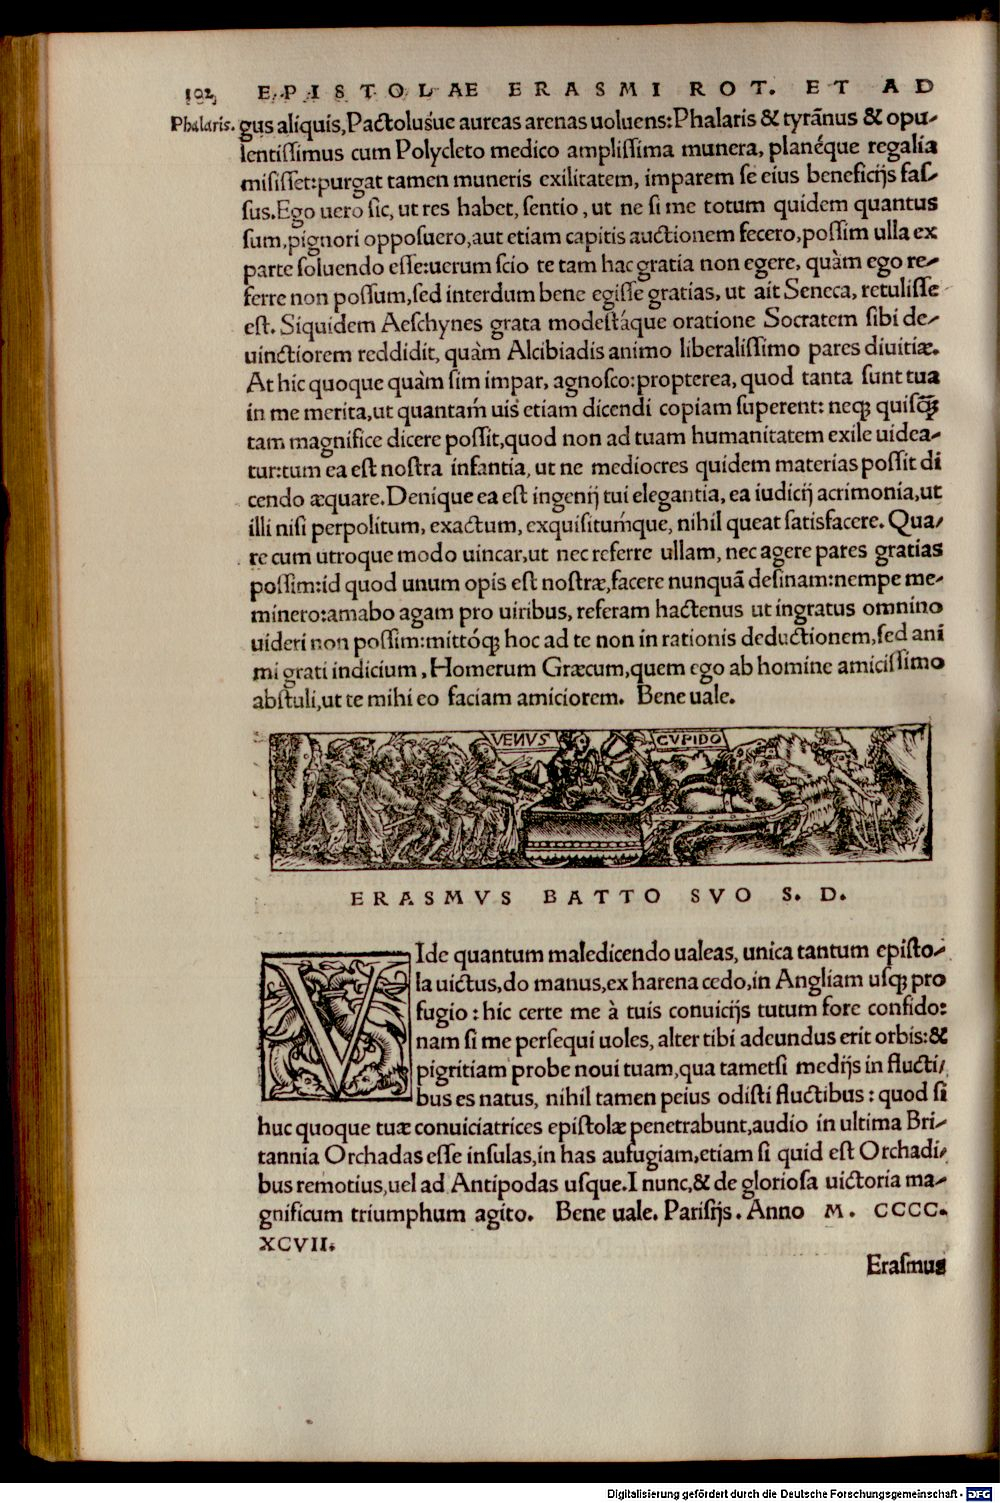 102 EPISTOLAE ERASMI ROT. ET AD
Phalaris.
gus aliquis,Pactolusúe aureas arenas uoluens:Phalaris & tyrãnus & opu-
lentiſſimus cum Polycleto medico ampliſſima munera, planéque regalia
misiſſet:purgat tamen muneris exilitatem, imparem ſe eius beneficijs faſ-
ſus.Ego uero ſic, ut res habet, ſentio, ut ne ſi me totum quidem quantus
ſum,pignori oppoſuero,aut etiam capitis auctionem fecero,poſſim ulla ex
parte ſoluendo eſſe:uerum ſcio te tam hac gratia non egere, quàm ego re-
ferre non poſſum,ſed interdum bene egiſſe gratias, ut ait Seneca, retuliſſe
eſt. Siquidem Aeſchynes grata modeſtáque oratione Socratem ſibi de-
uinctiorem reddidit, quàm Alcibiadis animo liberaliſſimo pares diuitiæ.
At hic quoque quàm ſim impar, agnoſco:propterea, quod tanta ſunt tua
in me merita,ut quantam uis etiam dicendi copiam ſuperent: neqȝ quiſq̃ȝ
tam magnifice dicere poſſit,quod non ad tuam humanitatem exile uidea-
tur:tum ea eſt noſtra infantia, ut ne mediocres quidem materias poſſit di
cendo æquare.Denique ea eſt ingenij tui elegantia, ea iudicij acrimonia,ut
illi niſi perpolitum, exactum, exquiſitumque, nihil queat ſatisfacere. Qua-
re cum utroque modo uincar,ut nec referre ullam, nec agere pares gratias
poſſim:id quod unum opis eſt noſtræ,facere nunquã deſinam:nempe me-
minero:amabo agam pro uiribus, referam hactenus ut ingratus omnino
uideri non poſſim:mittóqȝ hoc ad te non in rationis deductionem,ſed ani
mi grati indicium, Homerum Græcum,quem ego ab homine amiciſſimo
abſtuli,ut te mihi eo faciam amiciorem. Bene uale.
VENVS CVPIDO
ERASMVS BATTO SVO S. D.
VIde quantum maledicendo ualeas, unica tantum epiſto-
la uictus,do manus,ex harena cedo,in Angliam uſqȝ pro
fugio: hic certe me à tuis conuicijs tutum fore confido:
nam ſi me perſequi uoles, alter tibi adeundus erit orbis:&
pigritiam probe noui tuam,qua tametſi medijs in flucti-
bus es natus, nihil tamen peius odiſti fluctibus: quod ſi
huc quoque tuæ conuiciatrices epiſtolæ penetrabunt,audio in ultima Bri-
tannia Orchadas eſſe inſulas,in has aufugiam,etiam ſi quid eſt Orchadi-
bus remotius,uel ad Antipodas uſque.I nunc,& de glorioſa uictoria ma-
gnificum triumphum agito. Bene uale. Pariſijs. Anno M. CCCC.
XCVII.
Eraſmus
Digitalisierung gefördert durch die Deutsche Forschungsgemeinschaft - DFG